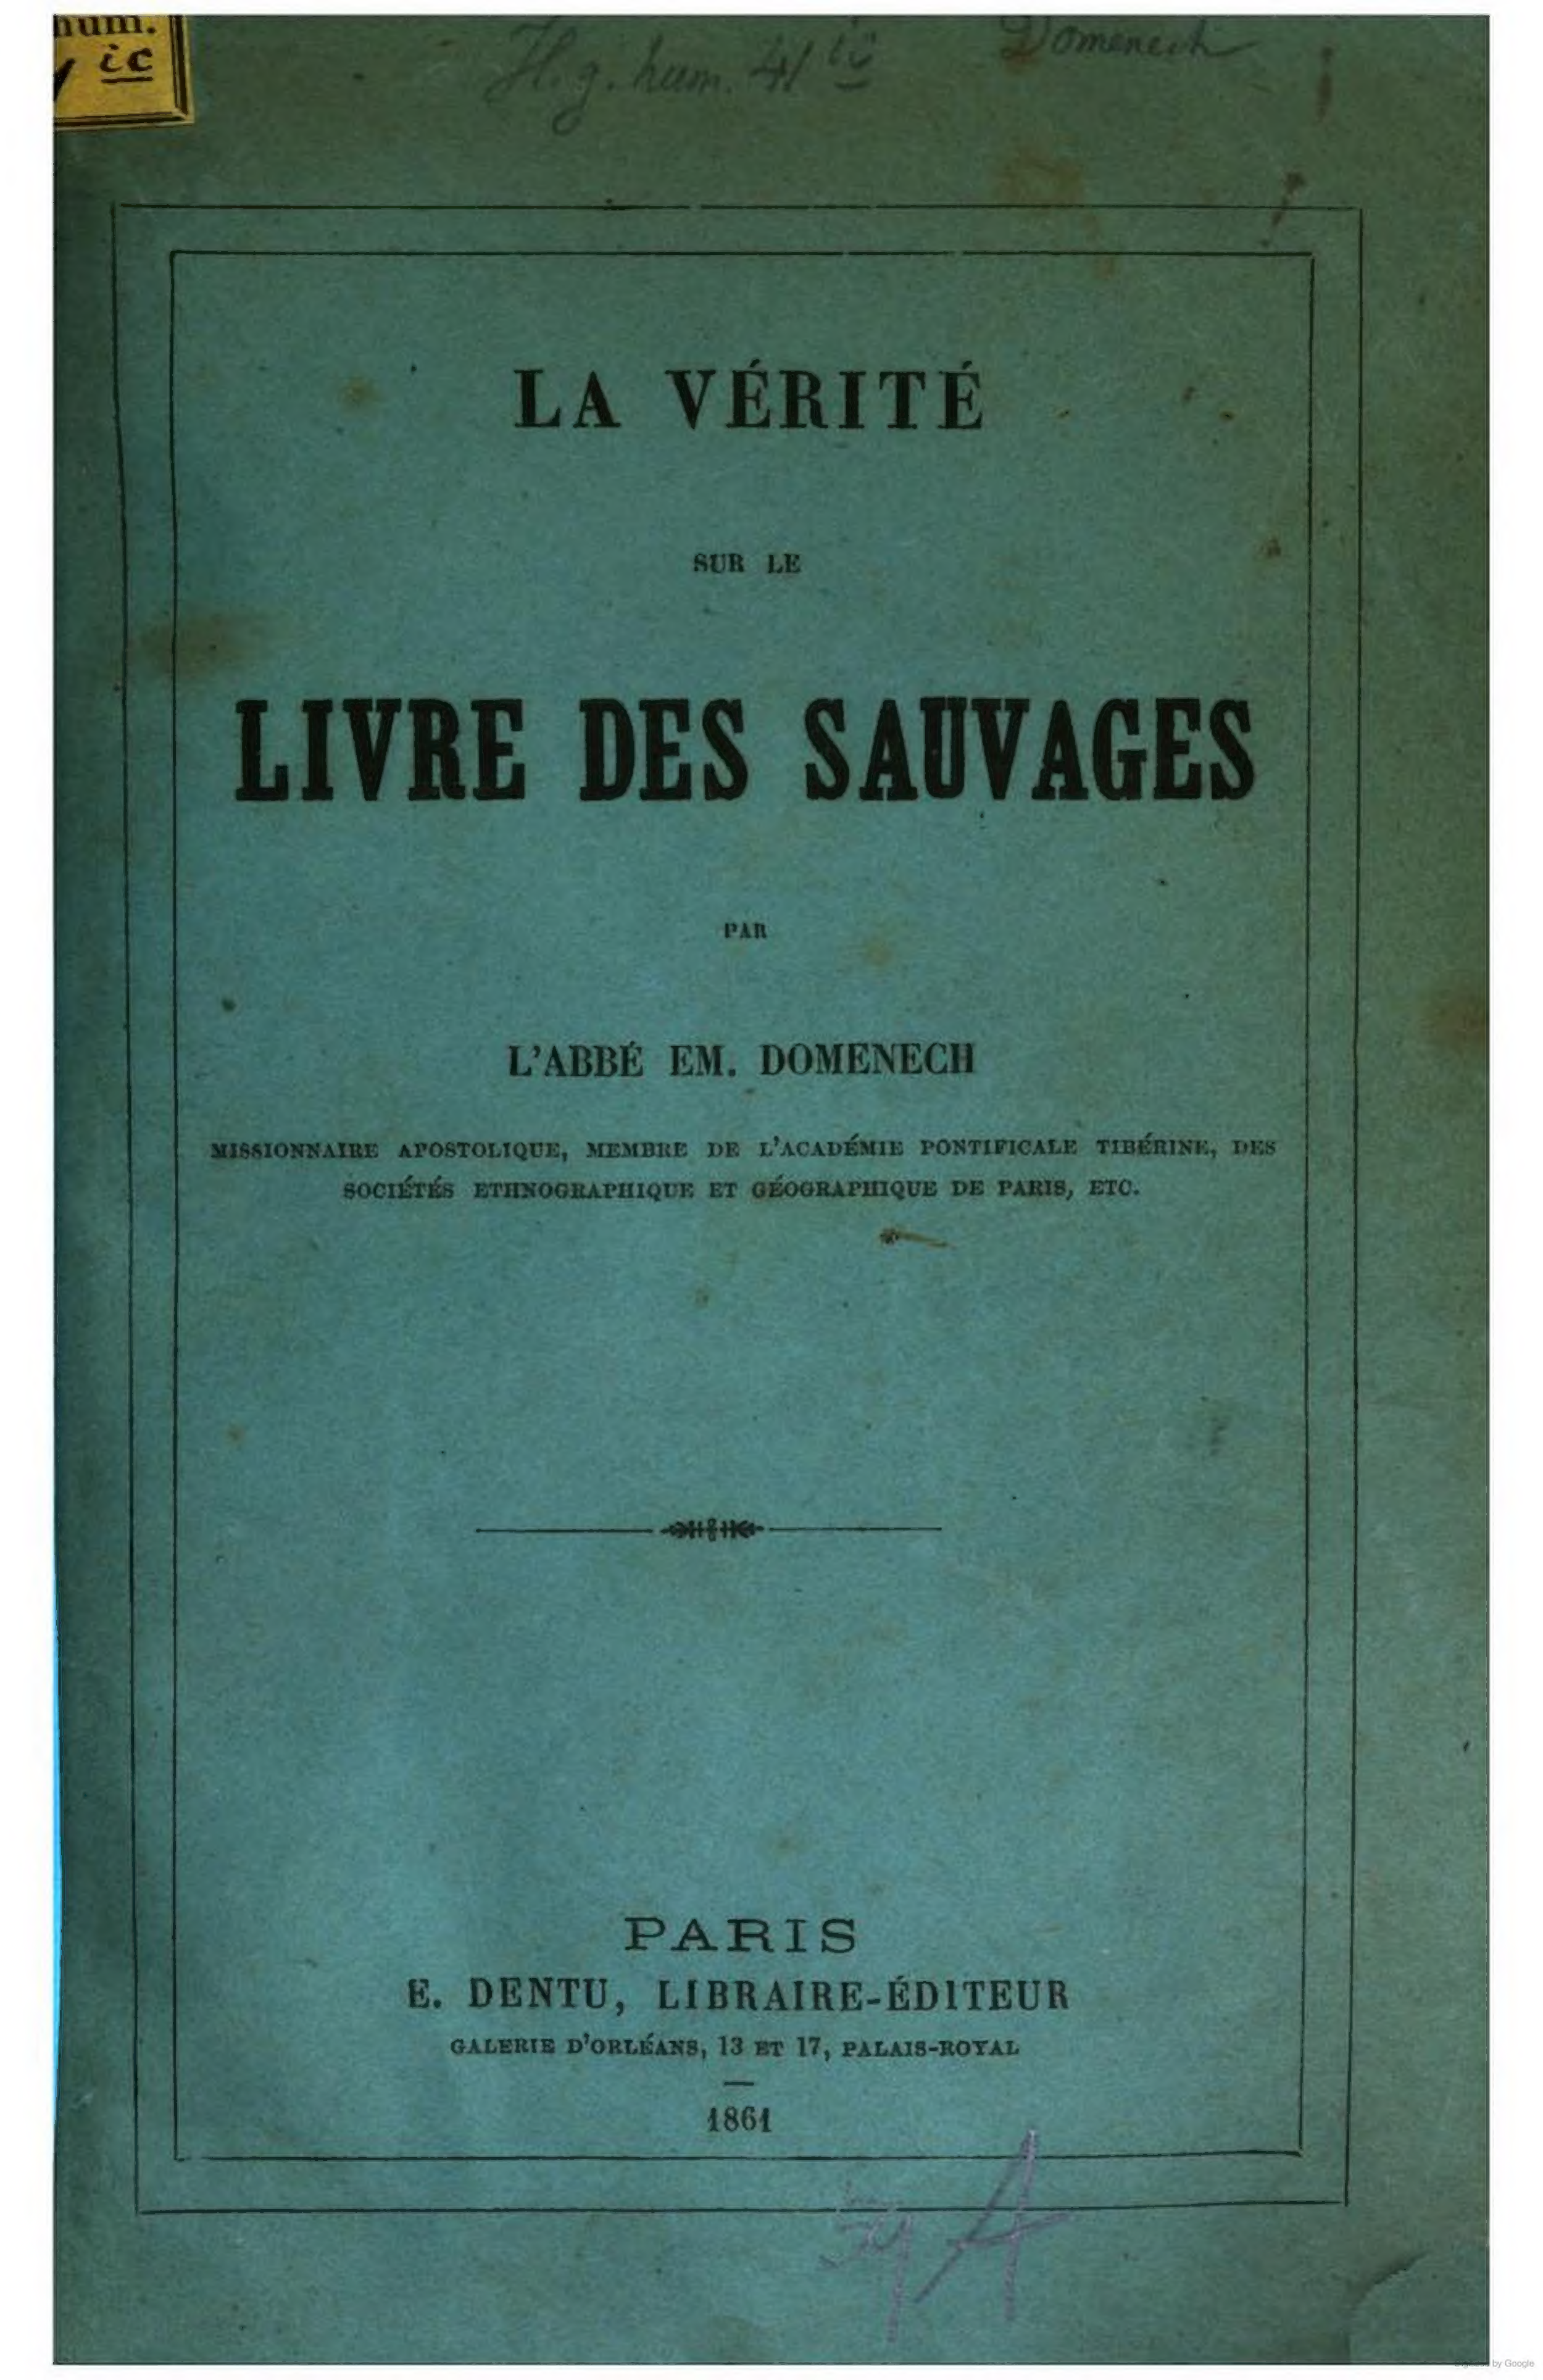 hum.
ic
H. g. hum. 41
Domenech
LA VÉRITÉ
SUR LE
LIVRE DES SAUVAGES
PAR
L'ABBÉ EM. DOMENECH
MISSIONNAIRE APOSTOLIQUE, MEMBRE DE L'ACADÉMIE PONTIFICALE TIBÉRINE, DES
SOCIÉTÉS ETHNOGRAPHIQUE ET GÉOGRAPHIQUE DE PARIS, ETC.
PARIS
E. DENTU, LIBRAIRE-ÉDITEUR
GALERIE D'ORLÉANS, 13 ET 17, PALAIS-ROYAL
1861
by Google